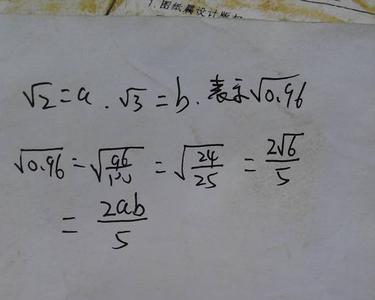 1.图纸属设计版权
√2=a.√3=b.表示√0.96
√0.96=√(96/100)=√(24/25)=2√6/5
=2ab/5